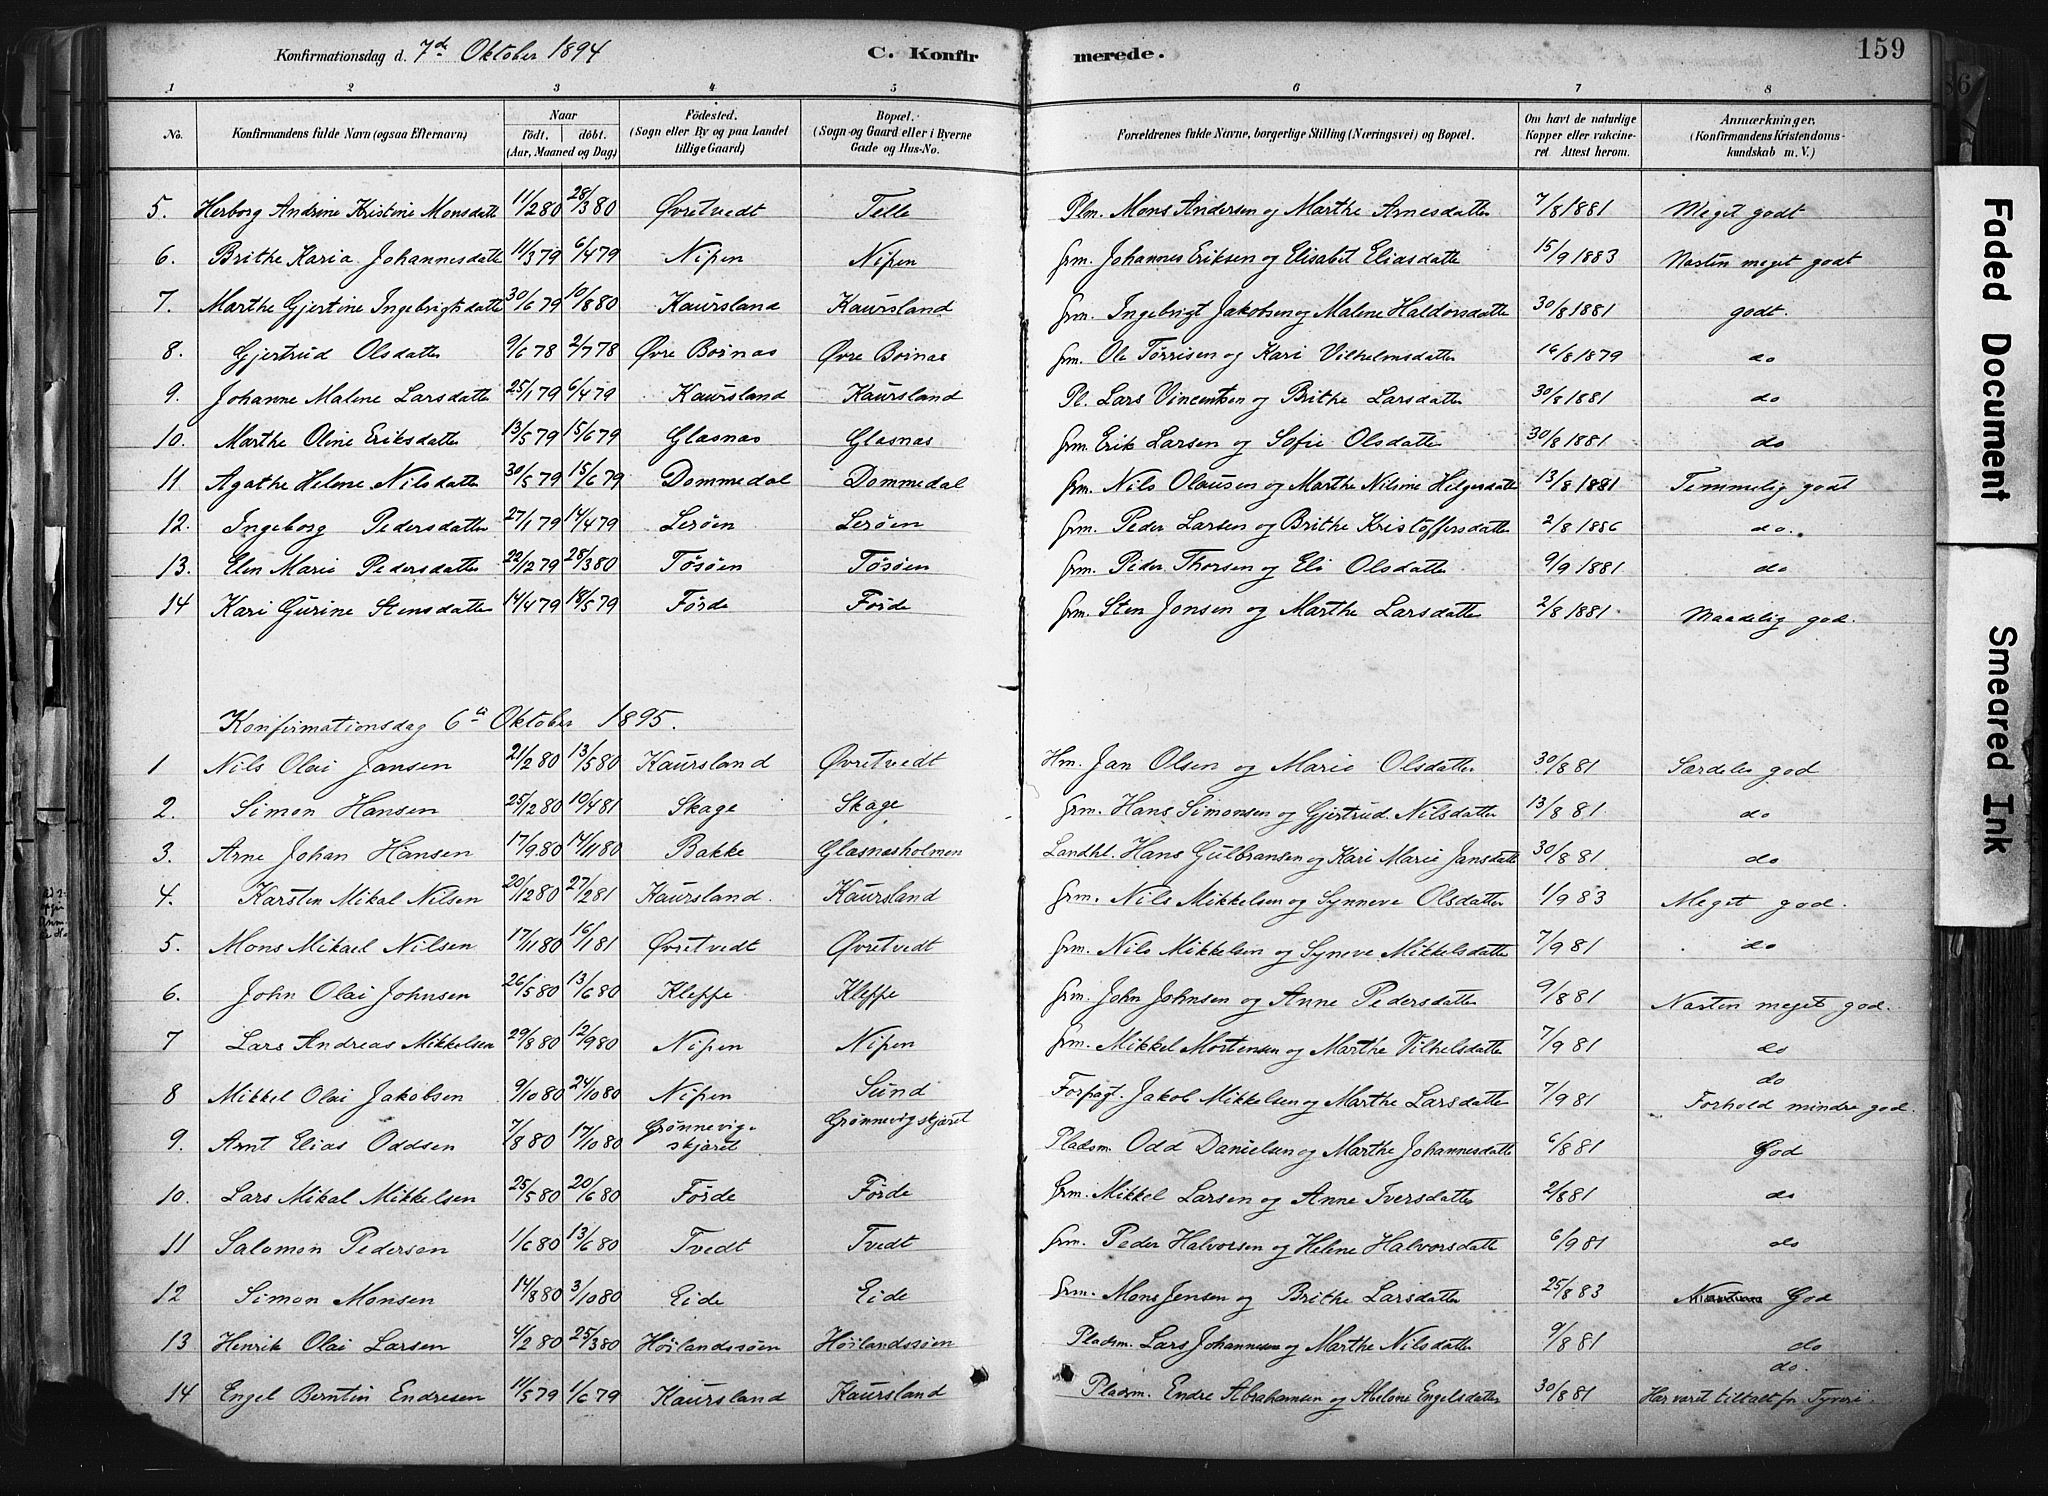 Konfirmationsdag d. 7de Oktober 1894 C. Konfirmerede. 159
1 2 3 4 5 6 7 8
No. Konfirmandens fulde Navn (ogsaa Efternavn) Naar födt. döbt. (Aar, Maaned og Dag) Födested. (Sogn eller By og paa Landet tillige Gaard) Bopæl. (Sogn og Gaard eller i Byerne Gade og Hus-No. Forældrenes fulde Navne, borgerlige Stilling (Næringsvei) og Bopæl. Om havt de naturlige Kopper eller vakcineret Attest herom. Anmærkninger. (Konfirmandens Kristendomskundskab m. V.)
5. Herborg Andrine Kristine Monsdatt 11/2 80 28/3 80 Øvretvedt Telle Plm. Mons Andersen og Marthe Arnesdatter 7/8 1881 Meget godt
6. Brithe Karia Johannesdatte 11/3 79 6/4 79 Nipen Nipen Grm. Johannes Eriksen og Elisabet Eliasdatte 15/9 1883 Næsten meget godt
7. Marthe Gjertine Ingebrigtsdatte 30/6 79 10/8 80 Kaursland Kaursland Grm. Ingebrigt Jakobsen og Malene Haldorsdatte 30/8 1881 godt.
8. Gjertrud Olsdatte 9/6 78 2/7 78 Øvre Bornæs Øvre Bornæs Grm. Ole Tørrisen og Kari Vilhelmsdatter 16/8 1879 do
9. Johanne Malene Larsdatte 25/1 79 6/4 79 Kaursland Kaursland Pl. Lars Vincentsen og Brithe Larsdatter 30/8 1881 do
10. Marthe Oline Eriksdatter 13/5 79 15/6 79 Glæsnæs Glæsnæs Grm. Erik Larsen og Sofie Olsdatte 30/8 1881 do
11 Agathe Helene Nilsdatte 30/5 79 15/6 79 Dommedal Dommedal Grm. Nils Olausen og Marthe Nilsine Helgesdatte 13/8 1881 Temmelig godt
12. Ingeborg Pedersdatter 27/1 79 14/4 79 Lerøen Lerøen Grm. Peder Larsen og Brithe Kristoffersdatte 2/8 1886 do.
13. Elen Marie Pedersdatter 22/12 79 28/3 80 Tøsøen Tøsøen Grm. Peder Thorsen og Eli Olsdatte 9/9 1881 do
14 Kari Gurine Stensdatter 14/4 79 18/5 79 Førde Førde Grm. Sten Jonsen og Marthe Larsdatte 2/8 1881 Maadelig god.
Konfirmationsdag 6te Oktober 1895.
1 Nils Olai Jansen 21/2 80 13/5 80 Kaursland Øvretvedt Hm. Jan Olsen og Marie Olsdatter 30/8 81 Særdeles god
2. Simon Hansen 25/12 80 19/4 81 Skage Skage Grm. Hans Simonsen og Gjertrud Nilsdatter 13/8 81 do
3. Arne Johan Hansen 17/9 80 14/11 80 Bakke Glæsnæsholmen Landhl. Hans Gulbransen og Kari Marie Jansdatt 30/8 81 do
4. Karsten Mikal Nilsen 20/12 80 27/2 81 Kaursland. Kaursland Grm. Nils Mikkelsen og Synneve Olsdatter 1/9 83 Meget god.
5. Mons Mikael Nilsen 17/11 80 16/1 81 Øvretvedt Øvretvedt Grm. Nils Mikkelsen og Syneve Mikkelsdatte 7/9 81 do
6. John Olai Johnsen 26/5 80 13/6 80 Kleppe Kleppe Grm. John Johnsen og Anne Pedersdatter 9/8 81 Næsten meget god.
7 Lars Andreas Mikkelsen 29/8 80 12/9 80 Nipen Nipen Grm. Mikkel Mortensen og Marthe Vilhelsdatte 7/9 81 do
8 Mikkel Olai Jakobsen 9/10 80 24/10 80 Nipen Sund Forpagt. Jakob Mikkelsen og Marthe Larsdatter 7/9 81 do Forhold mindre god.
9. Arnt Elias Oddsen 7/8 80 17/10 80 Grønnevigskjæret Grønnevigskjæret Pladsm. Odd Danielsen og Marthe Johannesdatte 6/8 81 God
10. Lars Mikal Mikkelsen 25/5 80 20/6 80 Førde Førde Grm. Mikkel Larsen og Anne Iversdatter 2/8 81 do
11 Salomon Pedersen 1/6 80 13/6 80 Tvedt Tvedt Grm. Peder Halvorsen og Helene Halvorsdatte 6/9 81 do
12 Simon Monsen 14/8 80 3/10 80 Eide Eide Grm. Mons Jensen og Brithe Larsdatter 25/8 83 God
13 Henrik Olai Larsen 4/2 80 25/3 80 Høilandssøen Høilandssøen Pladsm. Lars Johannesen og Marthe Nilsdatter 9/8 81 do
14 Engel Berntin Endresen 11/5 79 1/6 79 Kaursland Kaursland Pladsm. Endre Abrahamsen og Ahlene Engelsdatter 30/8 81 do. Har været tiltalt for Tyveri.
Faded Document
Smeared Ink